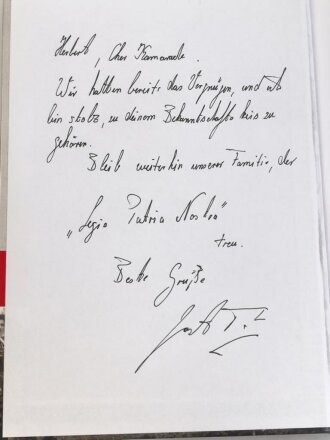 Herbert, Cher Kamarade.
Wir hatten bereits das Vergnügen, und ich
bin stolz, zu deinem Bekanntschaftskreis zu
gehören.
Bleib weiterhin unserer Familie, der
„Legio Patria Nostra"
treu.
Beste Grüße